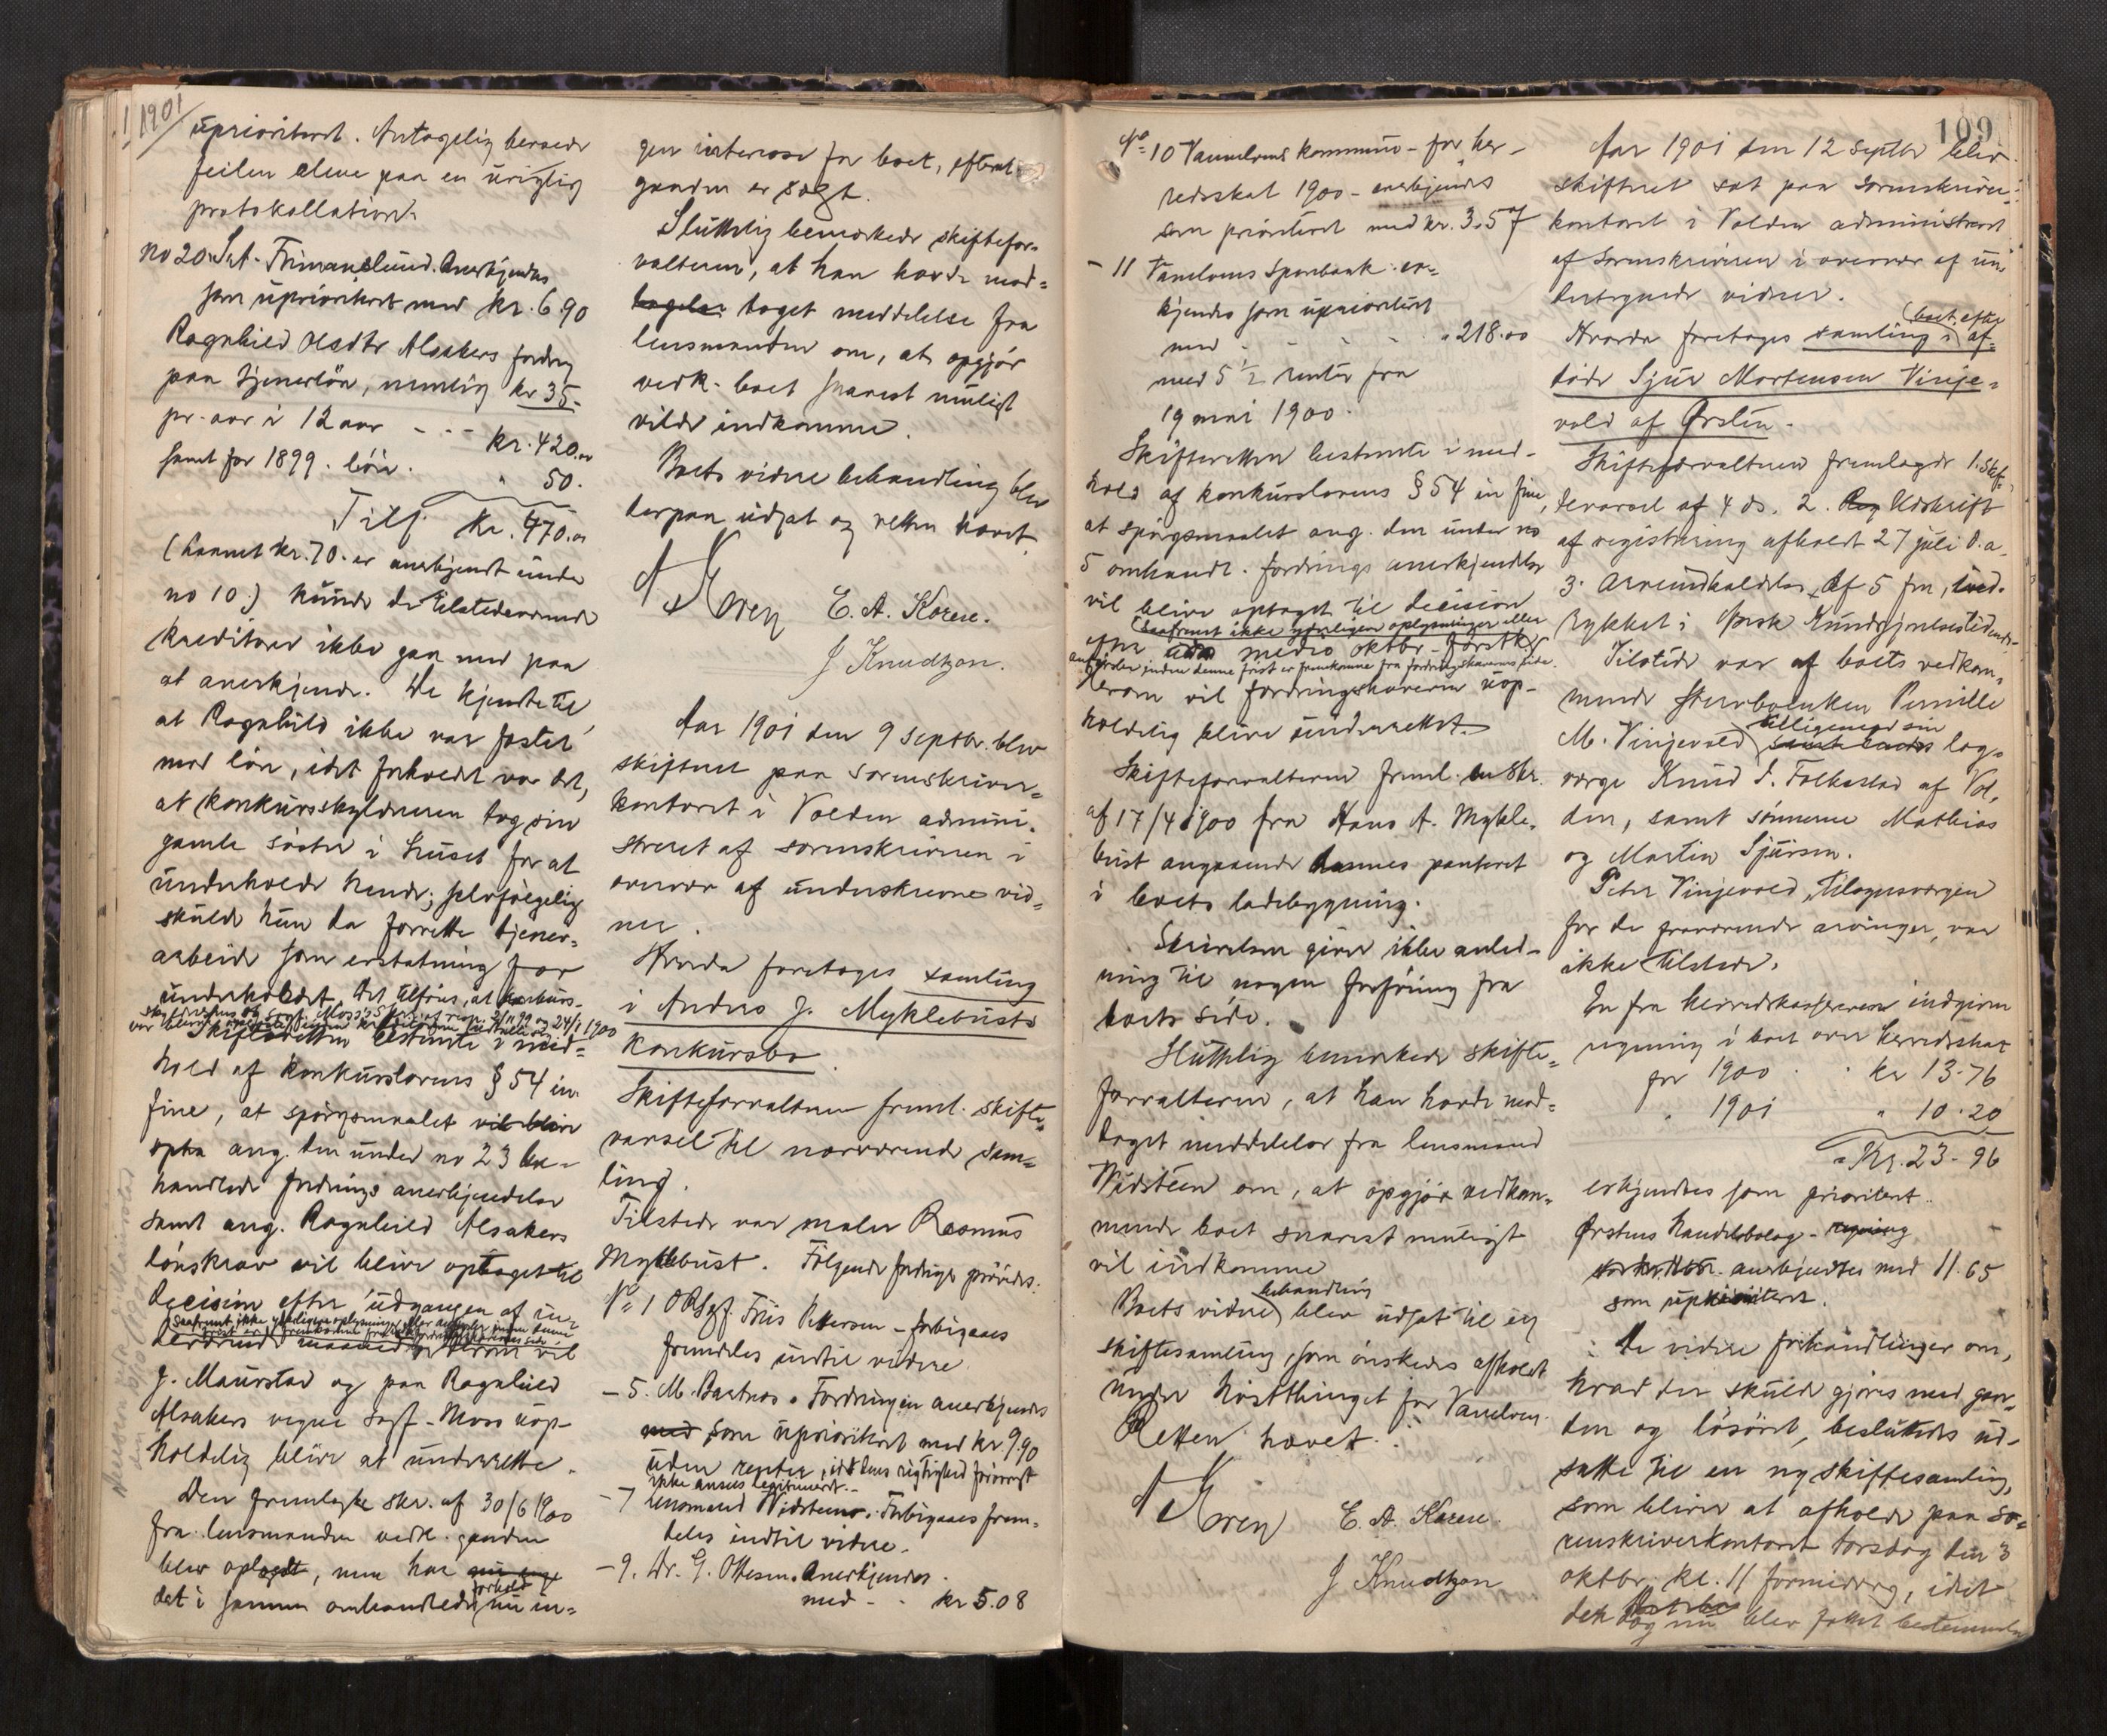 1901
uprioritert. Antagelig beroede
feilen alene paa en urigtig
protokollation.
no 20. Sev. Frimanslund. Anerkjendes
som uprioritert med kr. 6.90
Ragnhild Olsdtr Alsakers fordring
paa tjenerløn, nemlig kr 35-
pr. aar i 12 aar - - - kr. 420.00
samt for 1899. løn. " 50.
Tils. kr. 470.00
(hvoraf kr. 70. er anerkjendt under
no 10.) kunde de tilstedeværende
kreditorer ikke gaa med paa
at anerkjende. De kjendte til,
at Ragnhild ikke var fæstet
mod løn, idet forholdet var det,
at konkursskyldneren tog sin
gamle søster i huset for at
underholde hende; selvfølgelig
skulde hun da forrette tjener-
arbeide som erstatning for
underholdet. Det tilføies, at konkurs-
24/1 1900
Skifteretten bestemte i med-
hold af konkurslovens § 54 in
fine, at spørgsmaalet vil blive
opta ang. den under no 23 be-
handlede fordrings anerkjendelse
samt ang. Ragnhild Alsakers
lønskrav vil blive optaget til
decision efter udgangen af in-
derom vil
J. Maurstad og paa Ragnhild
Alsakers vegne sagf. Moss uop-
holdelig blive at underrette.
Den fremlagte skr. af 30/6 1900
fra lensmanden vedk. gaarden
blev oplæst, men har
det i samme omhandlede forhold nu in-
gen interesse for boet, efterat
gaarden er solgt.
Sluttelig bemerkede skiftefor-
valteren, at han havde mod-
tagelse taget meddelelse fra
lensmanden om, at opgjør
vedk. boet snarest muligt
vilde indkomme.
Boets videre behandling blev
derpaa udsat og retten hævet.
A Koren E. A. Koren.
J Knudtzon.
Aar 1901 den 9 septbr. blev
skifteret paa sorenskriver-
kontoret i Volden admini-
streret af sorenskriveren i
overvær af underskrevne vid-
ner.
Hvorda foretoges samling
i Anders J. Myklebusts
konkursbo.
Skifteforvalteren freml. skifte-
varsel til nærværende sam-
ling.
Tilstede var maler Rasmus
Myklebust. Følgende fordringer prøvedes.
No 1 ORSgf. Friis Petersen - forbigaaes
fremdeles indtil videre.
- 5. M. Bartnes. Fordringen anerkjendes
med som uprioritert med kr. 9.90
uden renter, idet dens rigtighed forøvrigt
ikke ansees legitimeret.-
- 7 lensmand Vidsteen. Forbigaaes frem-
deles indtil videre.
- 9. Dr. G. Ottesen. Anerkjendes
med - . kr 5.08
No 10 Vanelvens kommune - for her-
redsskat 1900 - anerkjendes
som prioritert med kr. 3.57
- 11 Vanelvens Sparebank er-
kjendes som uprioritert
med - - - - " 218.00
med 5 1/2 renter fra
19 mai 1900.
Skifteretten bestemte i med-
hold af konkurslovens § 54 in fine,
at spørgsmaalet ang. den under no
5 omhandl. fordrings anerkjendelse
vil blive optaget til decision
saafremt ikke yderligere oplysninger eller
efter medio oktbr. førstk.
andragender inden denne frist er fremkomne fra fordringshaverens side.
Herom vil fordringshaveren uop-
holdelig blive underrettet.
Skifteforvalteren freml. en skr.
af 17/4 1900 fra Hans A. Mykle-
bust angaaende hannes panteret
i boets ladebygning.
Skrivelsen giver ikke anled-
ning til nogen forføining fra
boets side.
Sluttelig bemerkede skifte-
forvalteren, at han havde mod-
taget meddelelse fra lensmand
Widsteen om, at opgjør vedkom-
mende boet snarest muligt
vil indkomme
Boets videre behandling blev udsat til en
skiftesamling, som ønskedes afholdt
under høstthinget for Vanelven.
Retten hævet.
A Koren E. A. Koren.
J Knudtzon
109
Aar 1901 den 12 septbr blev
skifteret sat paa sorenskriver-
kontoret i Volden administreret
af sorenskriveren i overvær af un-
dertegnede vidner.
Hvorda foretoges samling i boet efter af-
døde Sjur Mortensen Vinje-
vold af Ørsten.
Skifteforvalteren fremlagde 1. Skif-
tevarsel af 4 ds. 2. Reg Udskrift
af registrering afholdt 27 juli d.a.
3. arveindkaldelse af 5 jan, ind-
rykket i Norsk Kundgjørelsestidende.
Tilstede var af boets vedkom-
mende stervboenken Pernille
M. Vinjevold tilligemed sin lag-
verge Knud I. Folkestad af Vol-
den, samt sønnerne Mathias
og Martin Sjursen.
Peter Vinjevold, tilsynsvergen
for de fraværende arvinger, var
ikke tilstede.
En fra herredskassereren indgiven
regning i boet over herredsskat
for 1900 . . kr 13-76
" 1901 " 10.20
Kr. 23-96
erkjendtes som prioritert.
Ørstens handelsbolag - regning
anerkjendtes med 11.65
som uprioritert.
De videre forhandlinger om,
hvad der skulde gjøres med gaar-
den og løsøret, besluttedes ud-
satte til en ny skiftesamling,
som bliver at afholde paa so-
renskriverkontoret torsdag den 3
oktbr. kl. 11 formiddag, idet
det dog nu blev fattet bestemmelse